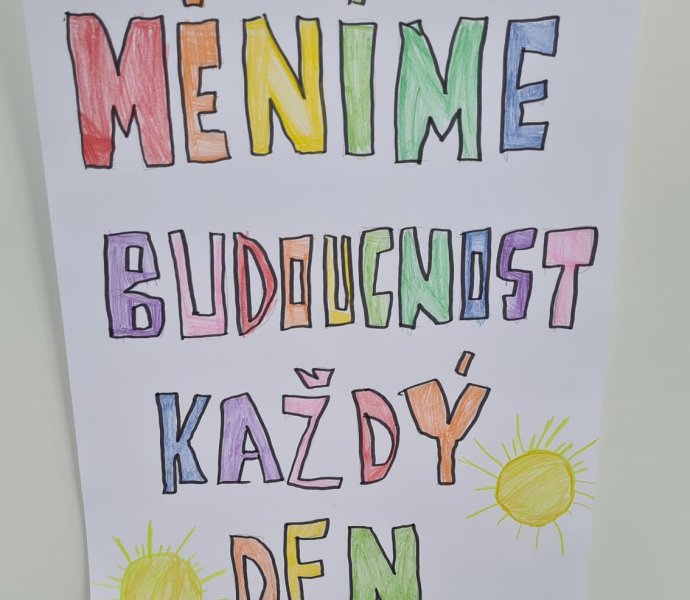 MĚNÍME
BUDOUCNOST
KAŽDÝ
DEN